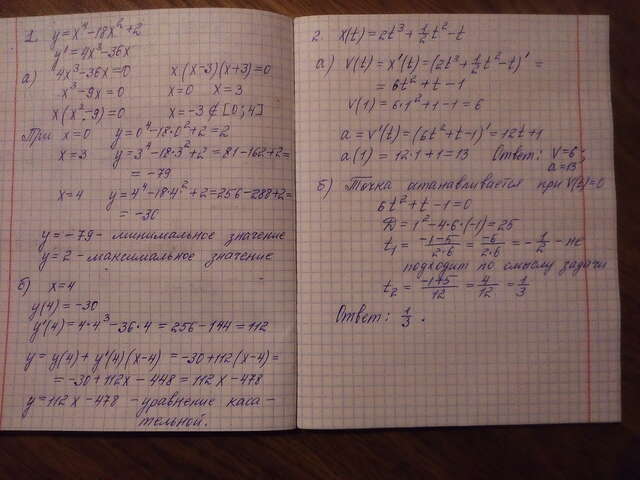 1. y=x⁴-18x²+2
y'=4x³-36x
а) 4x³-36x=0 x(x-3)(x+3)=0
x³-9x=0 x=0 x=3
x(x²-9)=0 x=-3∉[0;4]
При x=0 y=0⁴-18·0²+2=2
x=3 y=3⁴-18·3²+2=81-162+2=
=-79
x=4 y=4⁴-18·4²+2=256-288+2=
=-30
y=-79- минимальное значение
y=2- максимальное значение
б) x=4
y(4)=-30
y'(4)=4·4³-36·4=256-144=112
y=y(4)+y'(4)(x-4)=-30+112(x-4)=
=-30+112x-448=112x-478
y=112x-478 -уравнение каса-
тельной.
2. x(t)=2t³+½t²-t
а) v(t)=x'(t)=(2t³+½t²-t)'=
=6t²+t-1
v(1)=6·1²+1-1=6
a=v'(t)=(6t²+t-1)'=12t+1
a(1)=12·1+1=13 Ответ: v=6;
a=13.
б) Точка останавливается при v(t)=0
6t²+t-1=0
D=1²-4·6·(-1)=25
t₁=(-1-5)/(2·6)=-6/(2·6)=-½-не
подходит по смыслу задачи
t₂=(-1+5)/12=4/12=⅓
Ответ: ⅓.